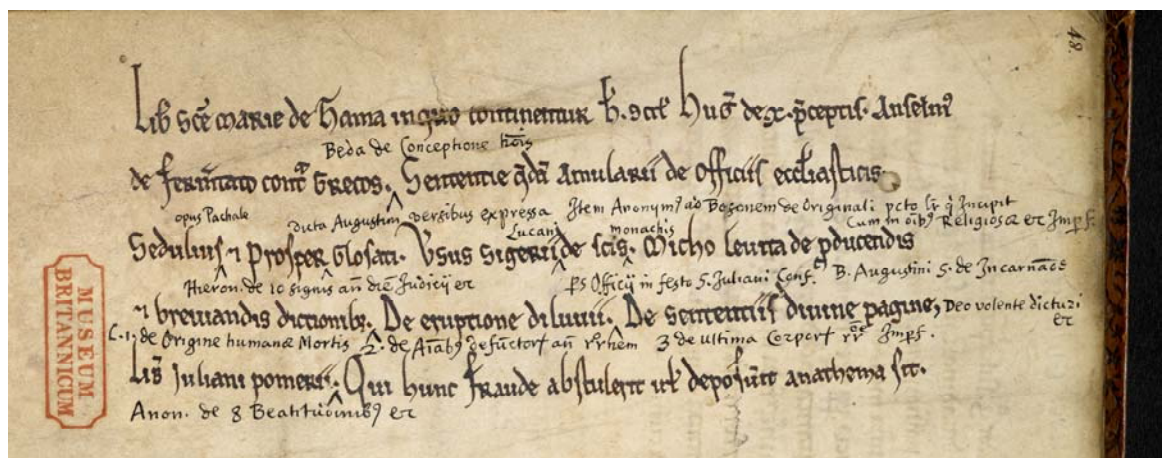 48.
Lib̄ Sc̄e marie de hama in quo continentur h̄. sc̄t Huḡ de x. p̄ceptis. Anselm9
Beda de Conceptione
de fermtato cont̄ Grecos. Sententie q̄dā Amularii de Officiis eccl̄iasticis
opus Pachale dicta Augustini versibus expressa Item Anonym9 ad Bosonem de Originali pcto lr q̄ Incipit
Lucani monachis Cum in oībꝫ Religiosæ et Imperf.
Sedulius ⁊ Prosper Glosati. Vsus Sigerii de scis. Micho leuita de p̄ducendis
Hierōn. de 10 signis añ diē Judicij et ps Officij in festo S. Juliani Conf. B. Augustini S. de Incarnāōe
⁊ breuiandis dictionibꝫ. De eruptione diluuii. De sententiis diuine pagine, Deo volente dicturi
et
C. 1. de Origine humanæ Mortis 2. de Aīabꝫ defunctorꝭ añ 3 de ultima Corporꝭ Imperf.
Lib̄ Iuliani pomerii. Qui hunc fraude abstulerit ut̄ depos̄uit anathema sit.
Anon. de 8 Beatitudinibꝫ et
MUSEUM
BRITANNICUM